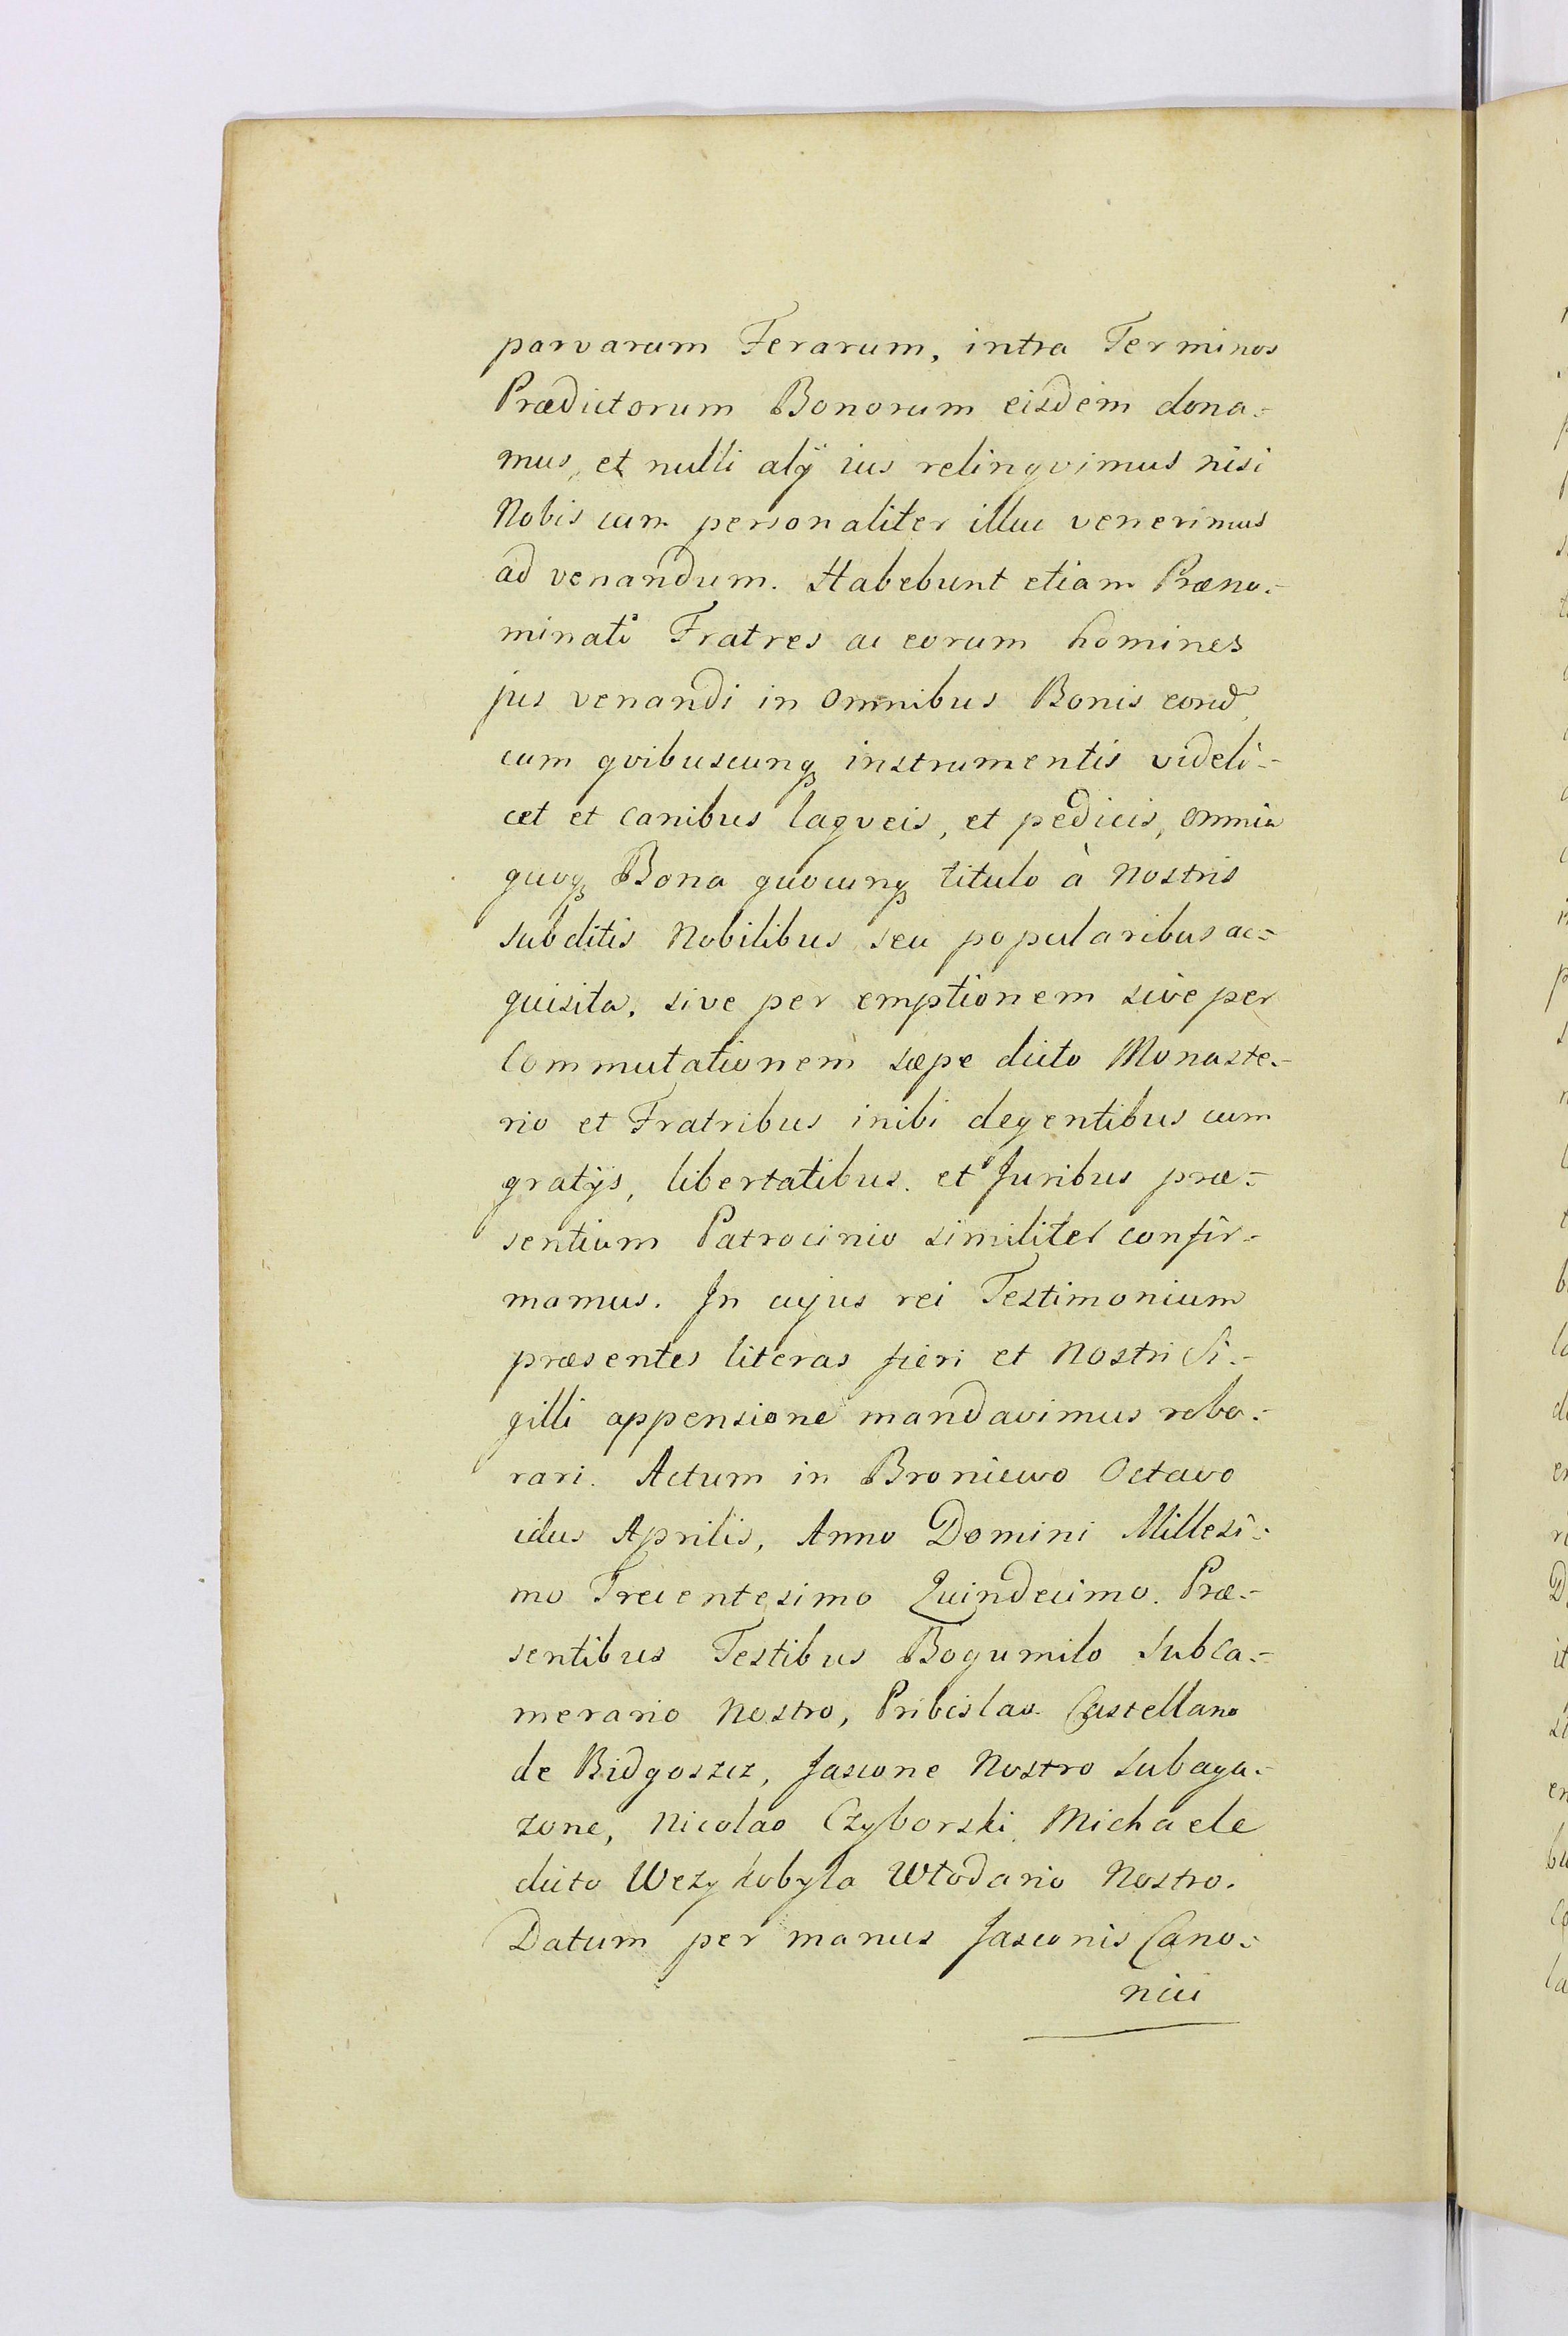 parvarum Ferarum, intra Terminos
Prædictorum Bonorum eisdem dona-
mus, et nulli alÿ ius relinqvimus nisi
Nobis cum personaliter illuc venerimus
ad venandum. Habebunt etiam Præno-
minati Fratres ac eorum homines
jus venandi in omnibus Bonis eord
cum qvibuscunqꝫ instrumentis videli-
cet et canibus laqveis, et pedicis, omnia
quoqꝫ Bona quocunqꝫ titulo à nostris
subditis Nobilibus seu popularibus ac-
quisita, sive per emptionem sive per
Commutationem sæpe dicto Monaste-
rio et Fratribus inibi degentibus cum
gratÿs, libertatibus. et Juribus præ-
sentium Patrocinio similiter confir-
mamus. In cujus rei Testimonium
præsentes literas fieri et Nostri Si-
gilli appensione mandavimus robo-
rari. Actum in Broniewo Octavo
idus Aprilis, Anno Domini Millesi-
mo Trecentesimo Quindecimo. Præ-
sentibus Testibus Bogumilo Subca-
merario Nostro, Pribislao Castellano
de Bidgoszcz, Jascone Nostro Subaga-
zone, Nicolao Czyborski, Michaele
dicto Wezykobyla Włodario Nostro.
Datum per manus Jasconis Cano-
nici